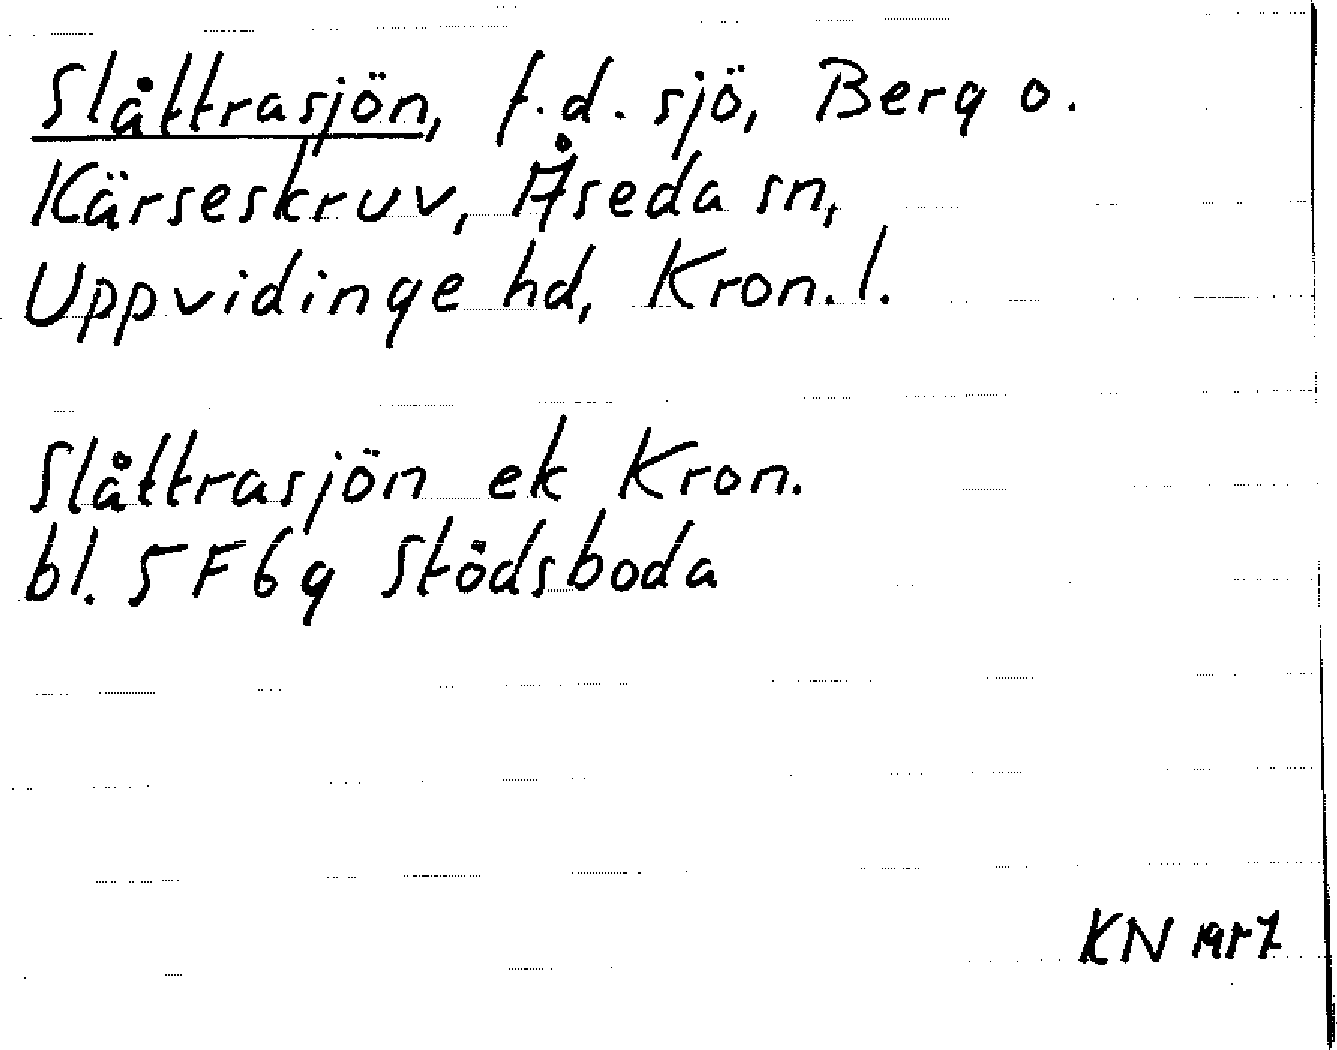 Slåttrasjön, f.d. sjö, Berg o.
Kärseskruv, Åseda sn,
Uppvidinge hd, Kron.l.
Slåttrasjön ek Kron.
bl. 5F6g Stödsboda
KN 1957